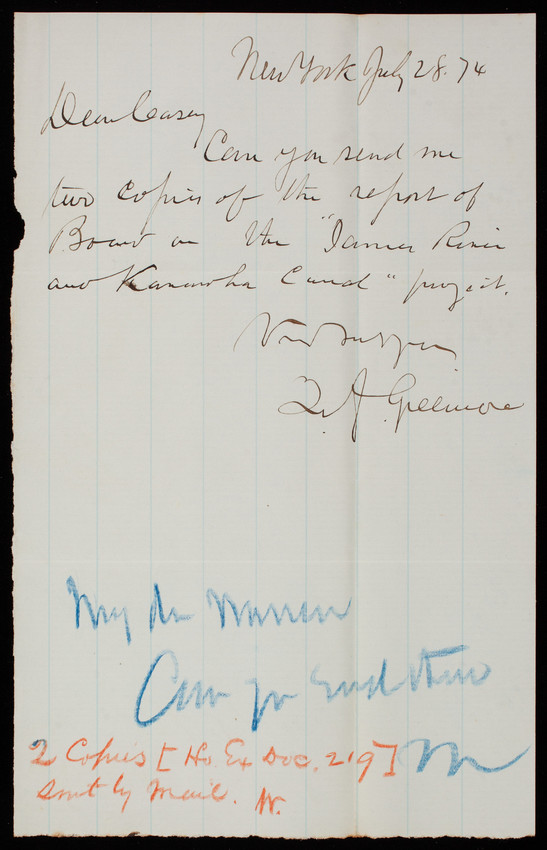 New York July 28. 74
Dear Casey
Can you send me
two copies of the report of
Board on the "James River
and Kanawha Canal" project.
Q. A. Gillmore
My dr Warren
Can you send them
2 Copies [Ho Ex Doc. 219]
Sent by mail. W.